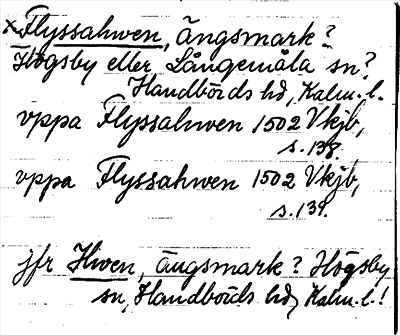 ×Flyssahwen, ängsmark?
Högsby eller Långemåla sn?
Handbörds hd, Kalm. l.
vppa Flyssahwen 1502 Vkjb,
s. 138.
vppa Flyssahwen 1502 Vkjb,
s. 139.
jfr Hiven, ängsmark? Högsby
sn, Handbörds hd, Kalm. l.!